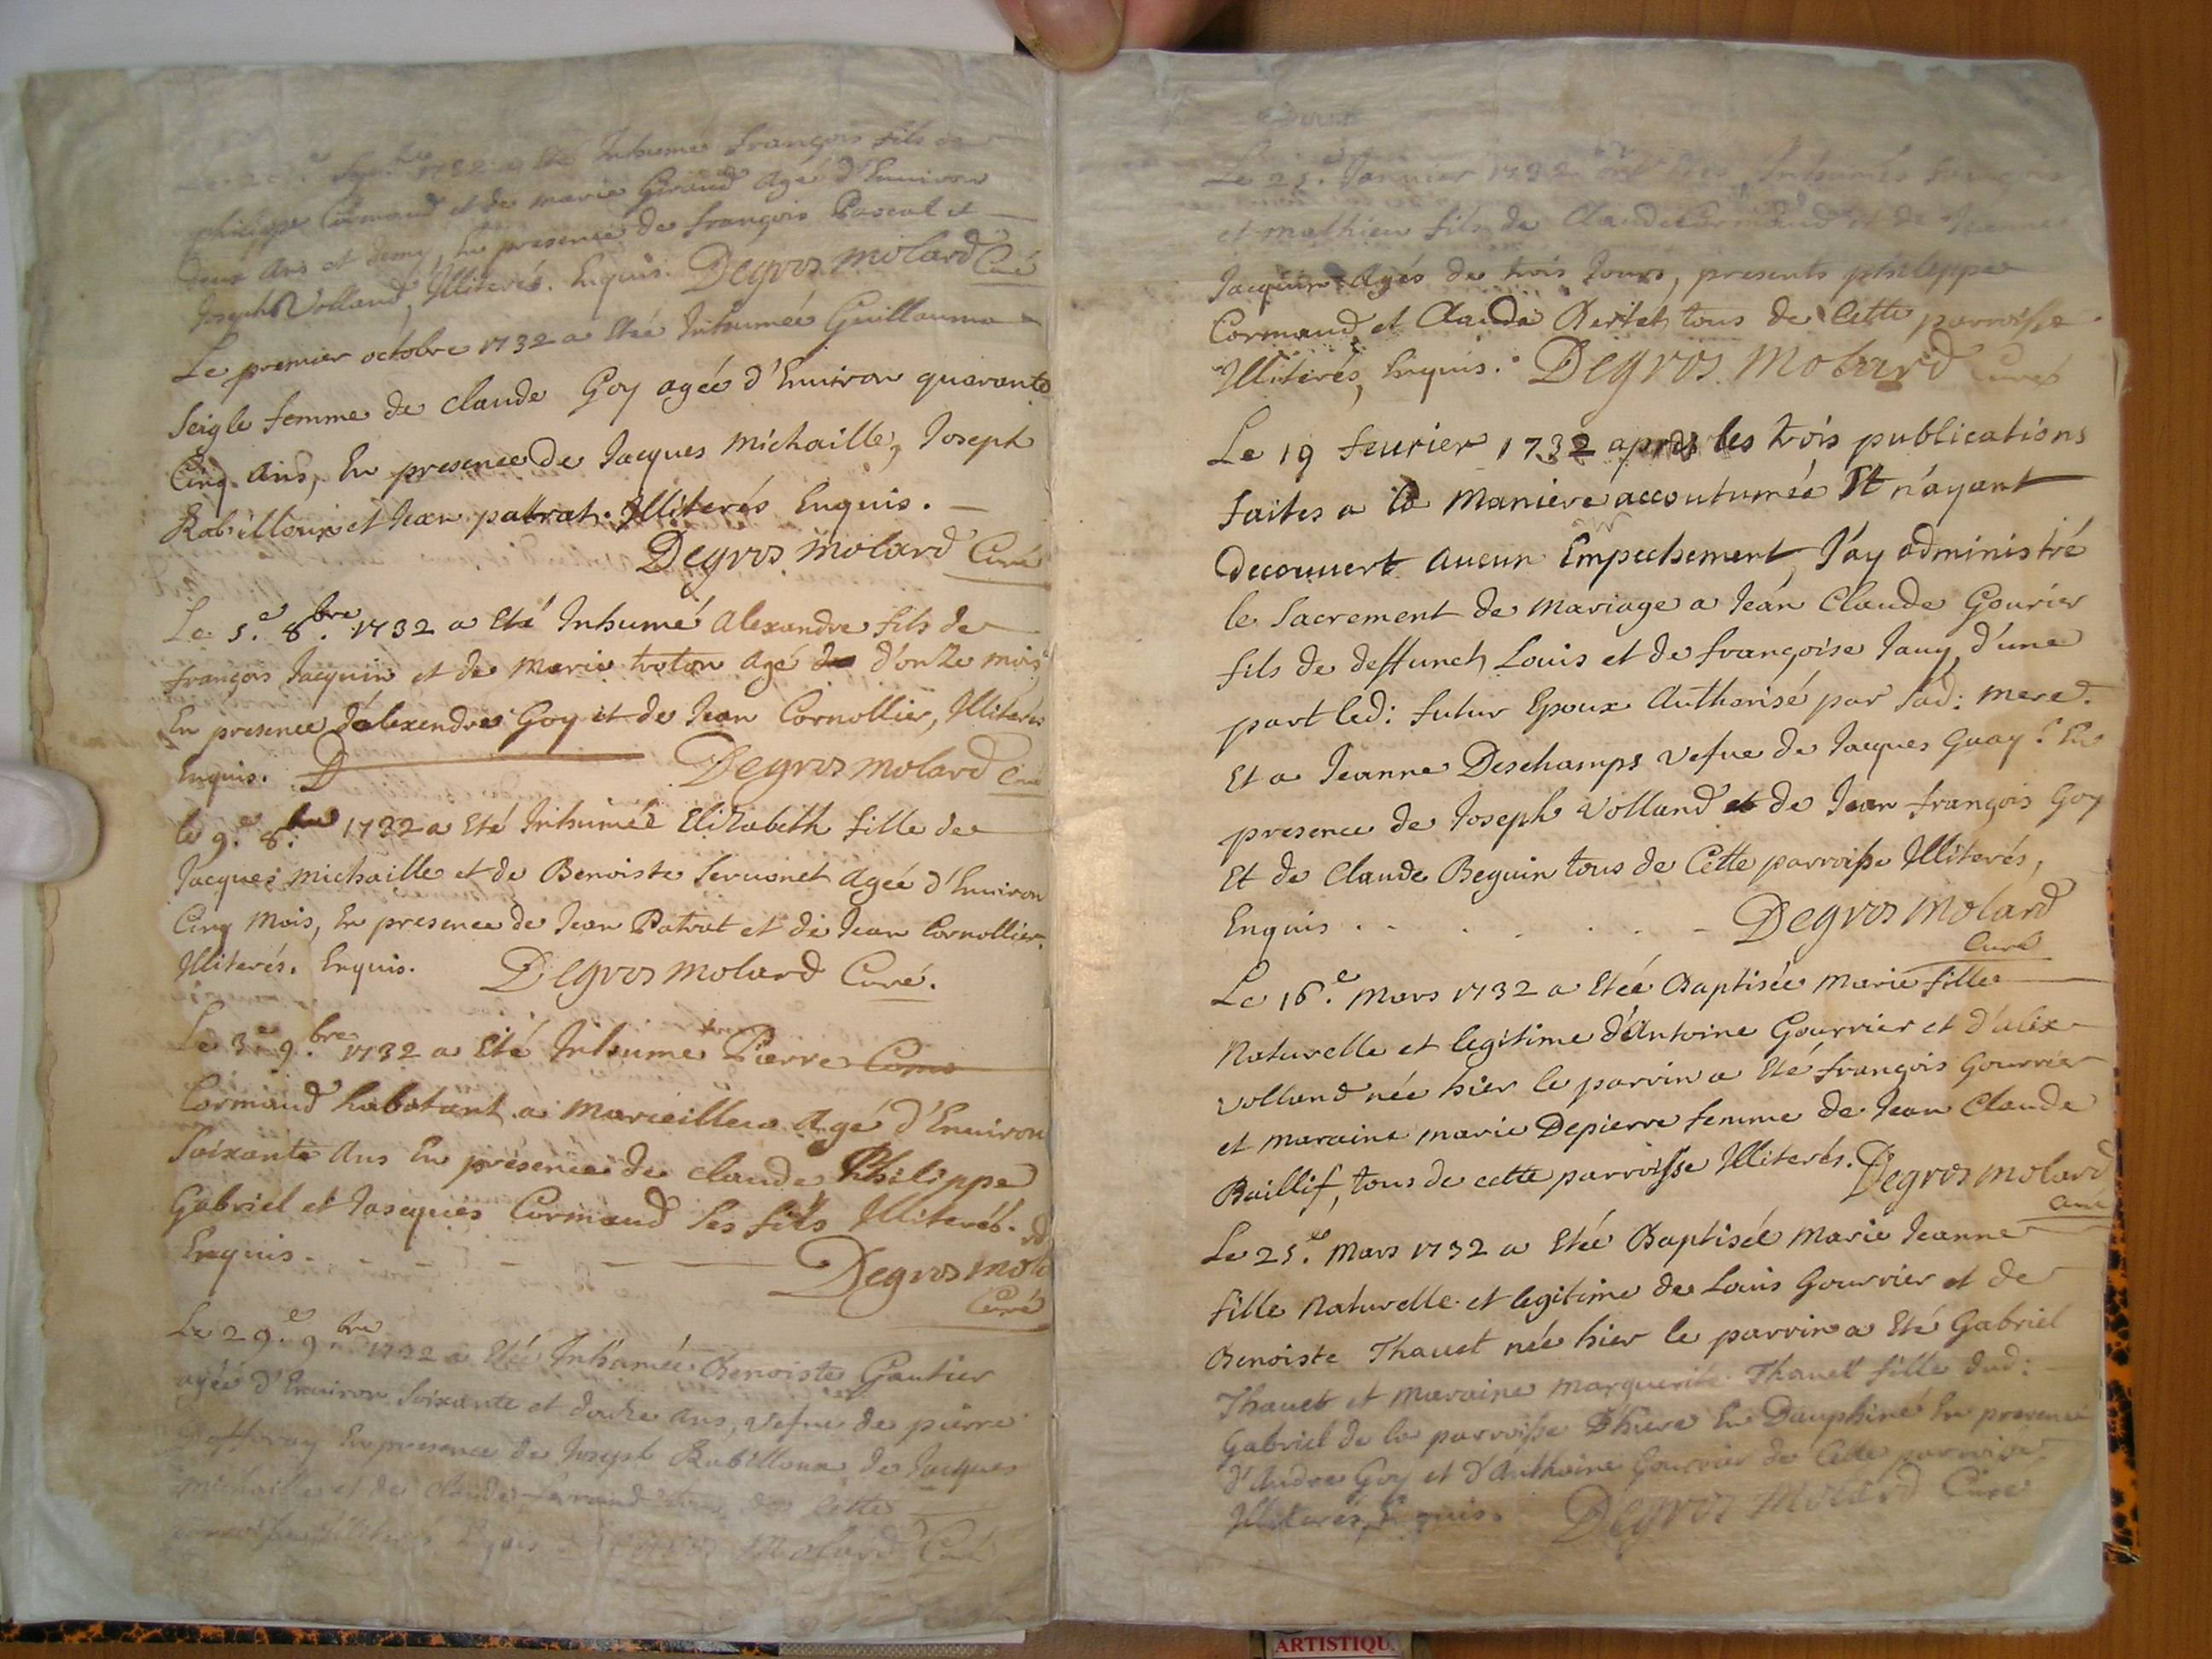 7bre 1732 a Eté Inhumé françois fils de
philippe Cormand et de marie Giraud Agé d'Enuiron
deux Ans et demy, En presence de françois Pascal et
Joseph Volland, Illiterés. Enquis. Degros molard Curé
Le premier octobre 1732 a Eteé Inhumée Guillauma
Seigle femme de claude Goy agée d'Enuiron quarante
Cinq Ans, En presence de Jacques Michaille, Joseph
Rabilloux et Jean patrat. Illiterés Enquis.
Degros molard Curé
Le 5.e 8.bre 1732 a Eté Inhumé Alexandre fils de
françois Jacquin et de Marie troton Agé de d'onze mois
En presence d'alexendre Goy et de Jean Cornollier, Illiterés
Enquis. Degros molard Curé
le 9.e 8.bre 1732 a Eté Inhumée Elizabeth fille de
Jacques michaille et de Benoiste Seruonet Agée d'Enuiron
Cinq Mois, En presence de Jean Patrat et de Jean Cornollier.
Illiterés. Enquis. Degros molard Curé.
Le 3.e 9.bre 1732 a Eté Inhumé Pierre Corma
Cormand habitant a Marcillieu Agé d'Enuiron
Soixante Ans En presence de claude Philippe
Gabriel et Jacques Cormand ses fils Illiterés.
Enquis. Degros molard
Curé
Le 29.e 9.bre 1732 a Eté Inhumée Benoiste Gautier
agée d'Enuiron Soixante et douze Ans, vefue de pierre
En presence de Joseph Rabilloux de Jacques
michaille et de Claude tous de Cette
parroisse Illiterés Enquis Degros Molard Curé
Le 25.e Januier 1732 ont Etés Inhumés françois
et mathieu fils de Claude Cormand et de Jeanne
Jacquin Agés de trois Jours, presents philippe
Cormand et Claude Bertet tous de Cette parroisse.
Illiterés, Enquis. Degros Molard Curé
Le 19 feurier 1732 apres les trois publications
faites a la Maniere accoutumée Et n'ayant
decouuert aucun Empechement, J'ay administré
le Sacrement de Mariage a Jean Claude Gourier
fils de deffunct Louis et de françoise Jauy d'une
part led: futur Epoux Authorisé par sad: mere.
Et a Jeanne Deschamps vefue de Jacques Guay. En
presence de Joseph Volland et de Jean françois Goy
Et de Claude Beguin tous de Cette parroisse Illiterés,
Enquis . Degros molard
Curé
Le 16.e Mars 1732 a Eteé Baptisée Marie fille
Naturelle et legitime d'Antoine Gourrier et d'alix
volland née hier le parrin a Eté françois Gourrier
et maraine marie Depierre femme de Jean Claude
Baillif, tous de cette parroisse Illiterés. Degros molard
Curé
Le 25.e Mars 1732 a Eteé Baptisée Marie Jeanne
fille Naturelle et legitime de Louis Gourrier et de
Benoiste Thauet née hier le parrin a Eté Gabriel
Thauet et Maraine Marguerite Thauet fille dud:
Gabriel de la parroisse D'hiere En Dauphiné En presence
d'Andre Goy et d'Anthoine Gourrier de Cette parroisse
Illiterés, Enquis. Degros Molard Curé
ARTISTIQU